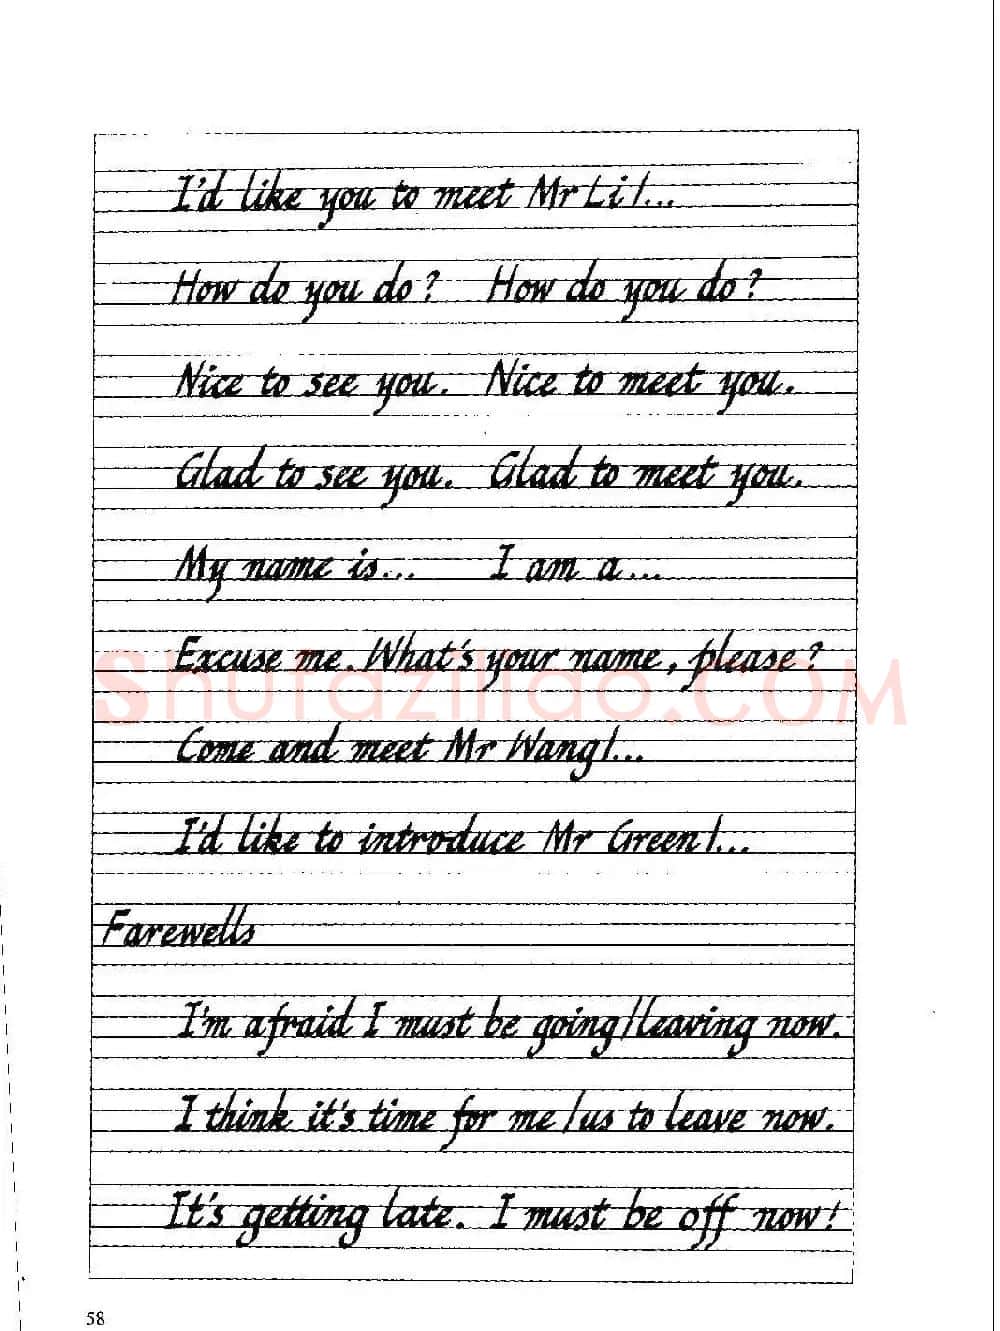 I'd like you to meet Mr Li/...
How do you do? How do you do?
Nice to see you. Nice to meet you.
Glad to see you. Glad to meet you.
My name is... I am a...
Excuse me. What's your name, please?
Shufaziliao.COM
Come and meet Mr Wang/...
I'd like to introduce Mr Green/...
Farewells
I'm afraid I must be going/leaving now.
I think it's time for me/us to leave now.
It's getting late. I must be off now!
58